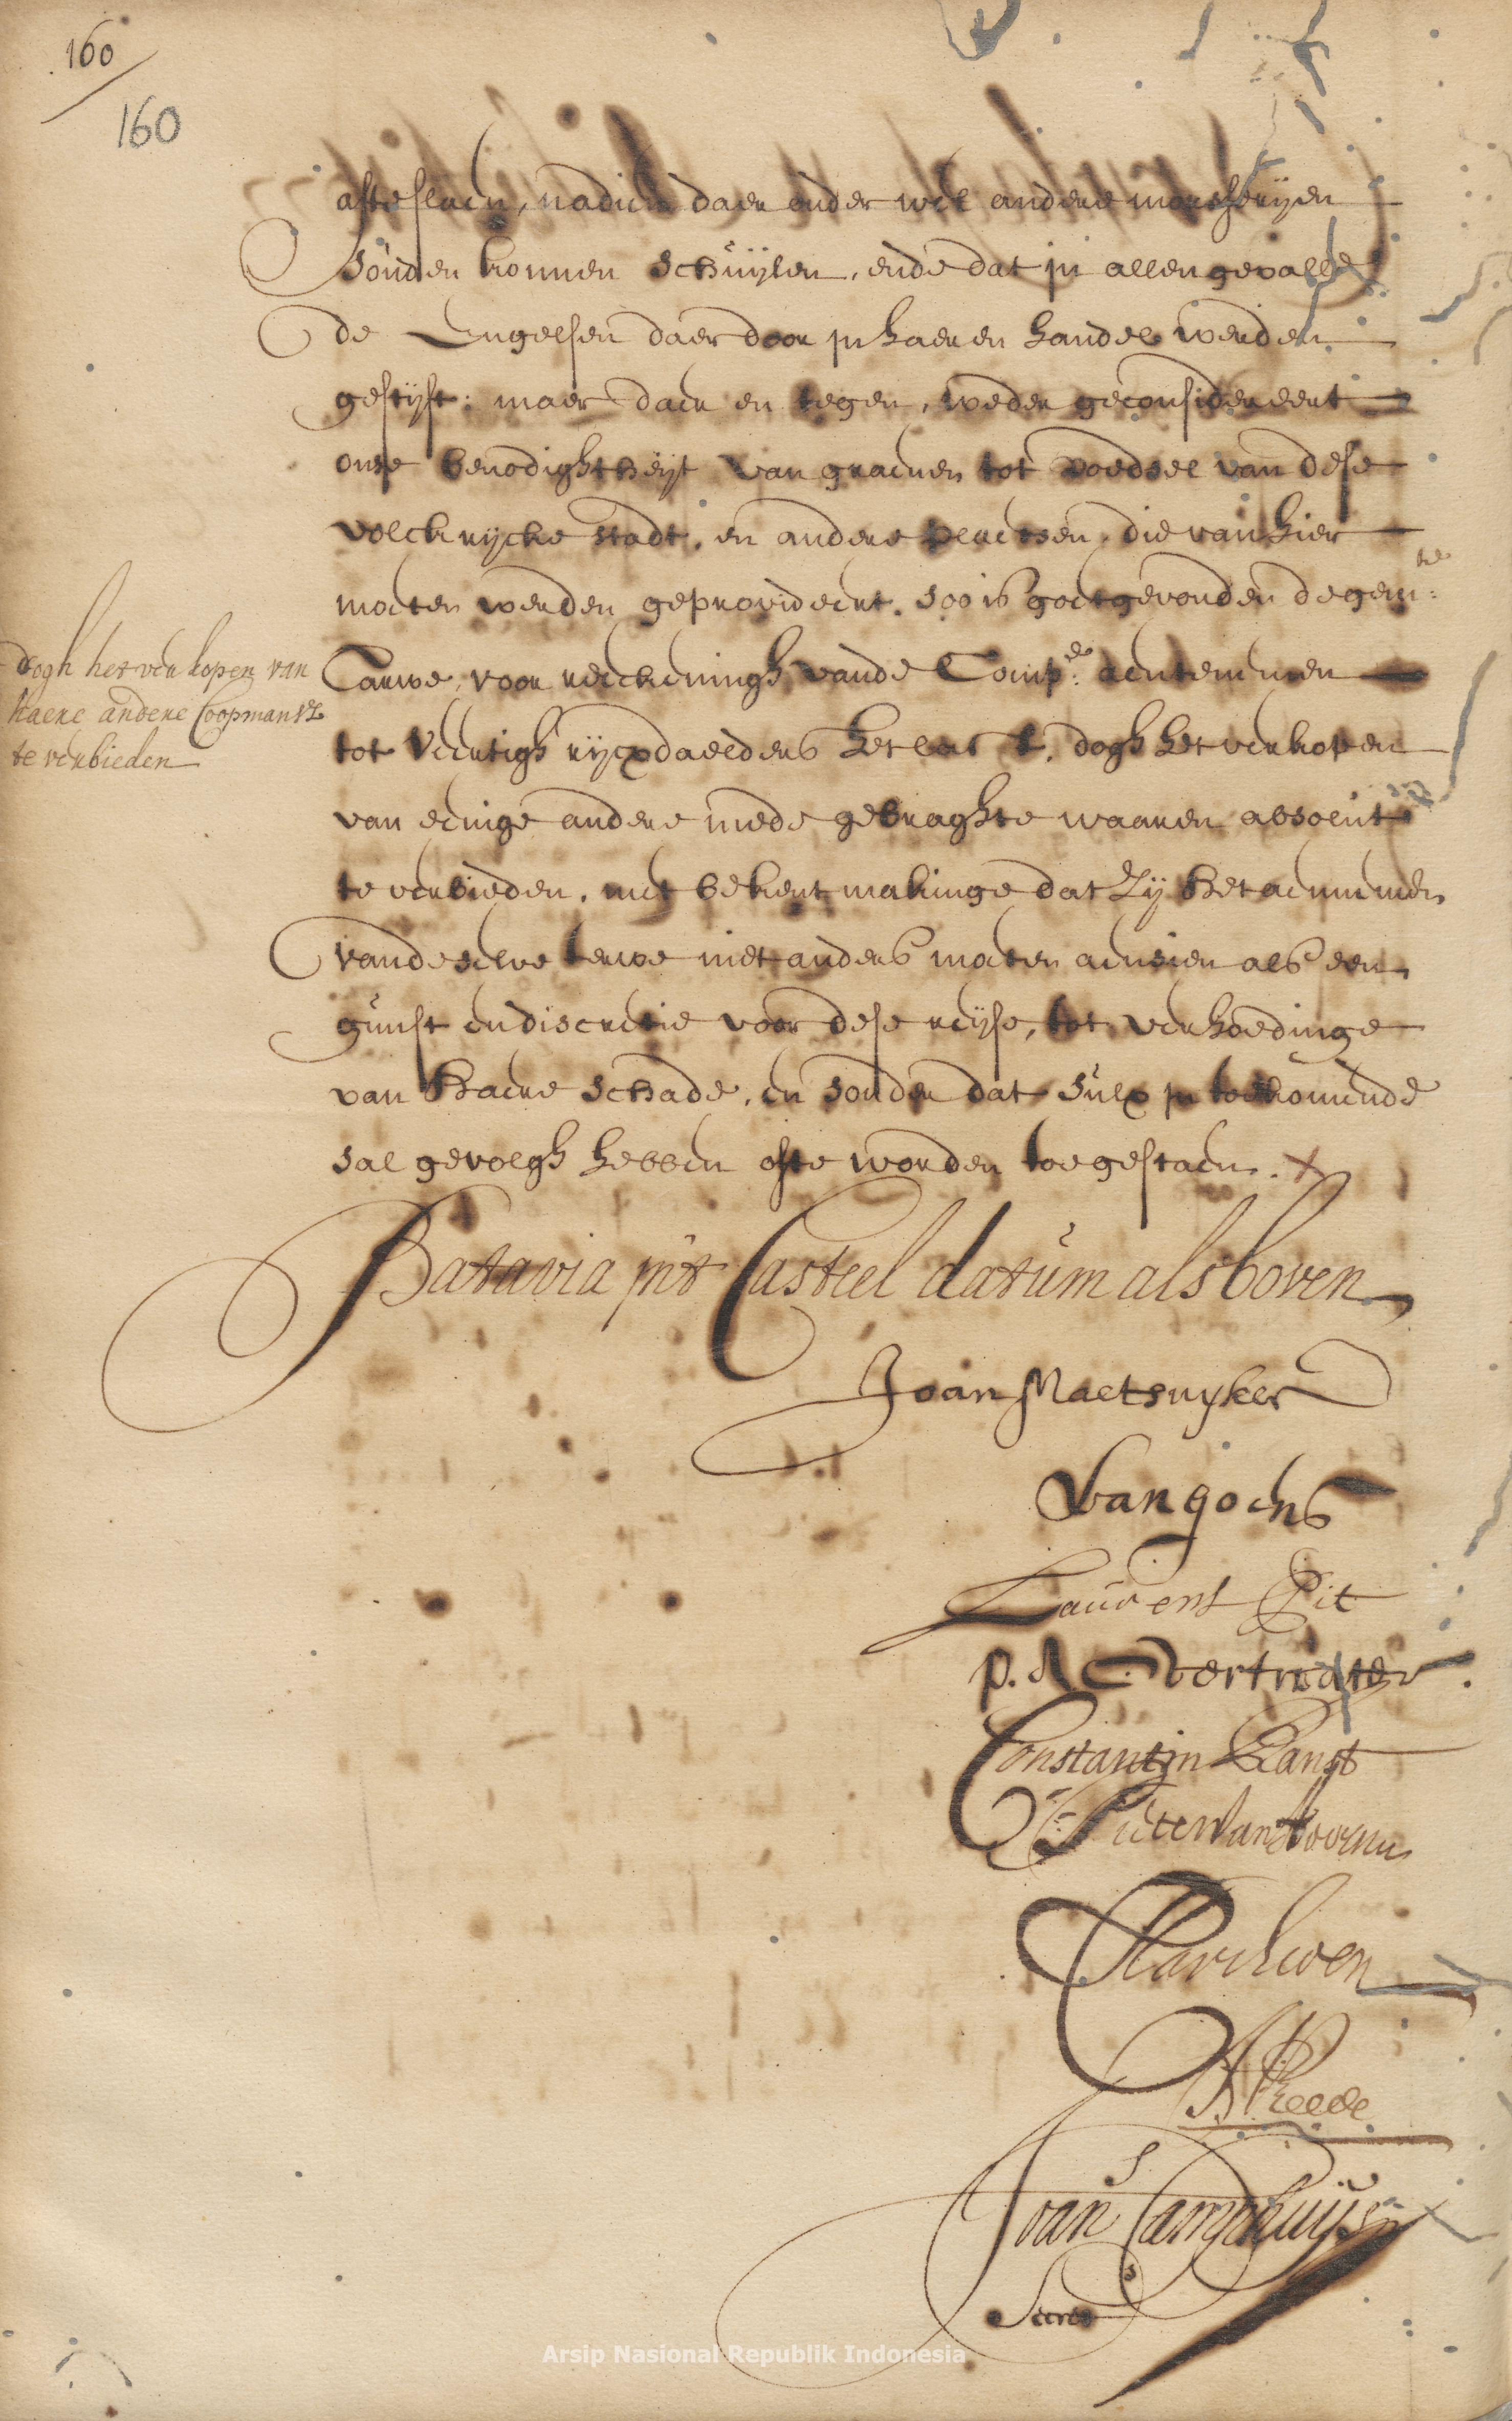 160
160
afteslaen, nadien daer onder wel andere morsserijen
souden konnen schuijlen, ende dat in allen gevalle
de Engelsen daer door in haeren handel werden
gestijft: maer daer en tegen, weder geconsidereert
onse benodightheijt van graenen tot voedsel van dese
volckrijcke stadt, en andere plaetsen, die van hier
moeten werden geprovideert. soo is goetgevonden de gem:te
Tarwe, voor reeckeningh vande Comp:e aentenemen
tot veertigh rijcxdaelders het last, dogh het verkopen
van eenige andere mede gebraghte waaren absolut
te verbieden, met bekentmakinge dat zij het aennemen
vandeselve terwe niet anders moeten aensien als een
gunst en discretie voor dese reijse, tot verhoedinge
van haere schade, en sonder dat sulx in toekomende
sal gevolgh hebben ofte worden toegestaen.
dogh het verkopen van
haere andere Coopmans:
te verbieden
Batavia int Casteel datum als boven
Joan Maetsuyker
Van goens
Laurens Pit
p. A Overtwater
Constantin Ranst
Pieter van hoorn
A Reede
Joan Camphuijs
Secrets
Arsip Nasional Republik Indonesia